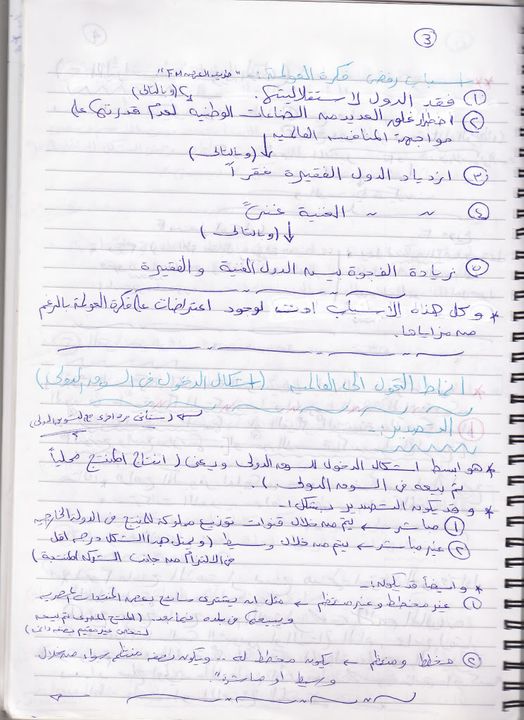 3
** أسباب رفض فكرة العولمة :-
① فقد الدول لاستقلاليتها. (وبالتالي)
② اضطرار غلق العديد من الصناعات الوطنية لعدم قدرتها على
مواجهة المنافسة العالمية
(وبالتالي)
③ ازدياد الدول الفقيرة فقرآ
④ ~ ~ الغنية غنىً
(وبالتالي)
⑤ زيادة الفجوة بين الدول الغنية والفقيرة
* وكل هذه الأسباب أدت لوجود اعتراضات على فكرة العولمة بالرغم
من مزاياها.
* أنماط التحول إلى العالمية (أشكال الدخول في السوق الدولى)
① التصدير :-
* هو أبسط أشكال الدخول للسوق الدولى ويعنى (إنتاج المنتج محلياً
ثم بيعه فى السوق الدولى).
* وقد يكون التصدير بشكل :-
① مباشر ← يتم من خلال قنوات توزيع مملوكة للمنتج فى الدولة الخارجية
② غير مباشر ← يتم من خلال وسيط (ويمثل هذا الشكل درجة أقل
من الالتزام من جانب الشركة المنتجة)
* وأيضاً قد يكون :-
① غير مخطط وغير منتظم ← مثل أن يشترى سائح بعض المنتجات المصرية
ويبيعها فى بلده فيما بعد. (المنتج المصرى تم بيعه
② مخطط ومنتظم ← يكون مخطط له .. ويكون بصفة منتظمة سواء من خلال
وسيط أو مباشرة".